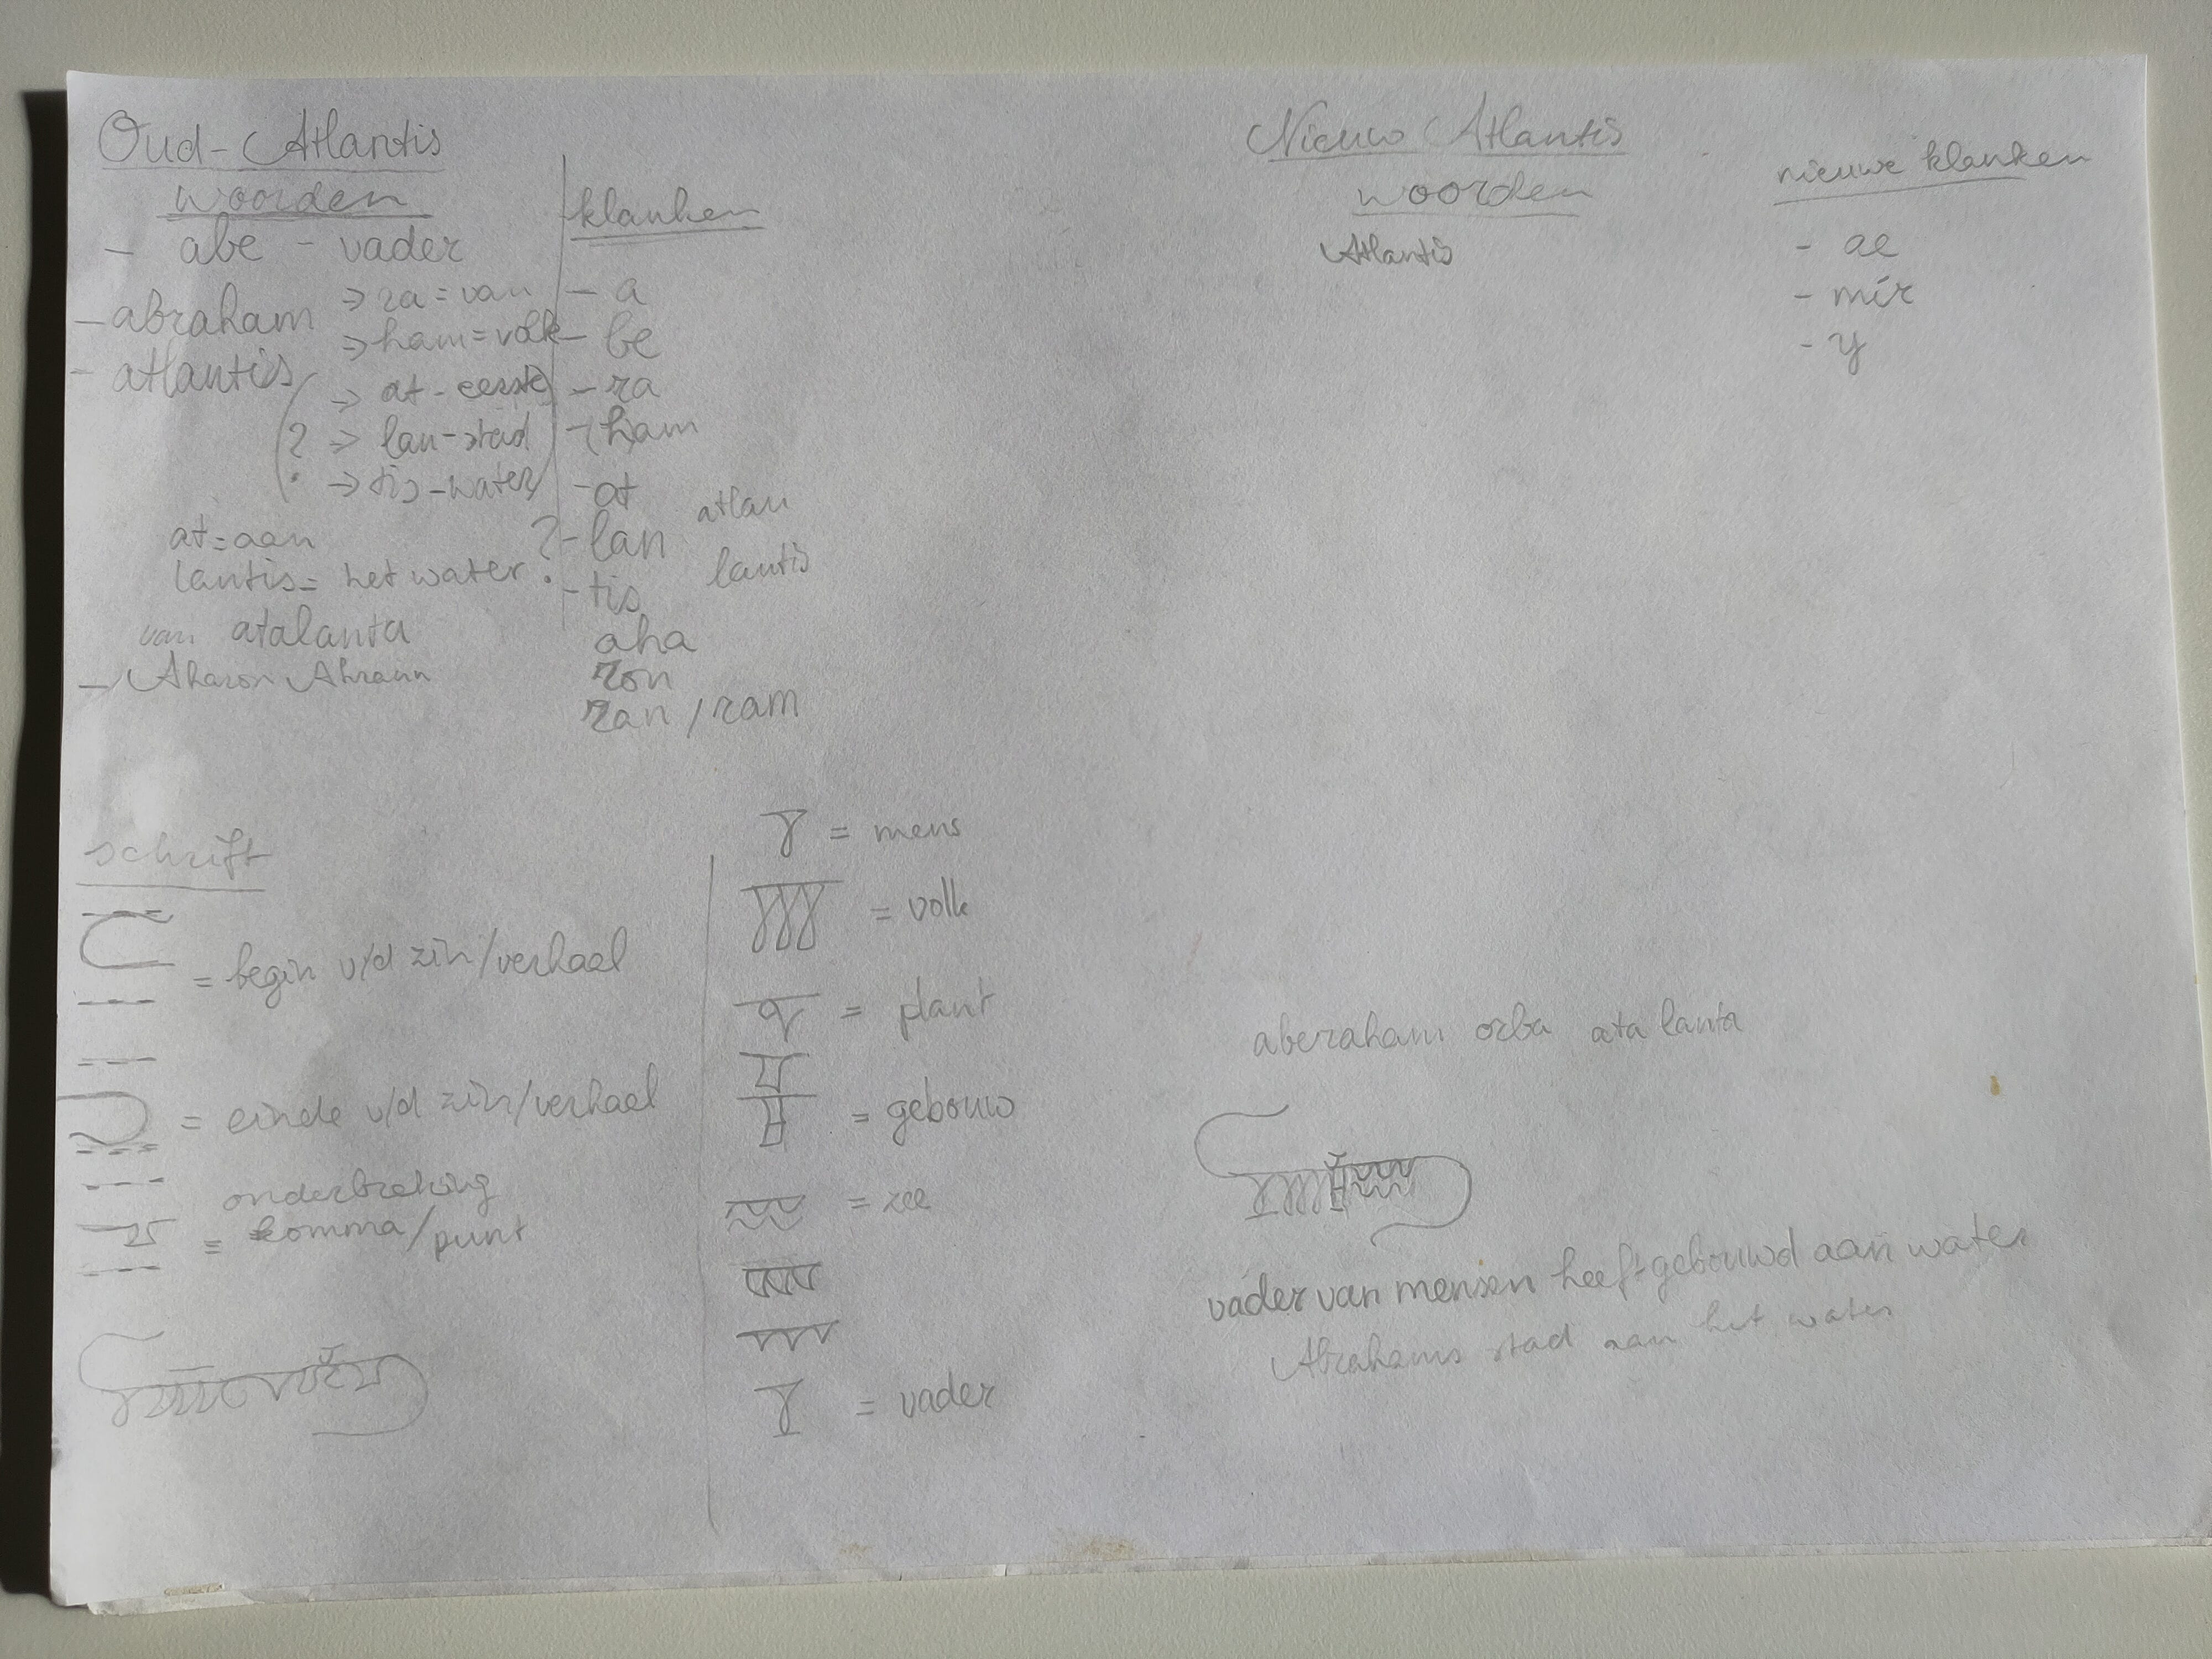 Oud-Atlantis
woorden
- abe - vader
- abraham => ra = van
=> ham = volk
- atlantis
(? => at - eerste)
=> lan - stad
=> tis - water
at = aan
lantis = het water ?
van atalanta
- Aharon Ahraan
klanken
- a
- be
- ra
- ham
- at
? - lan atlan
- tis lantis
aha
ron
ran / ram
schrift
= begin v/d zin/verhaal
= einde v/d zin/verhaal
onderbreking
= komma/punt
= mens
= volk
= plant
= gebouw
= zee
= vader
Nieuw Atlantis
woorden
Atlantis
nieuwe klanken
- ae
- mir
- y
aberaham orba ata lanta
vader van mensen heeft gebouwd aan water
Abrahams stad aan het water